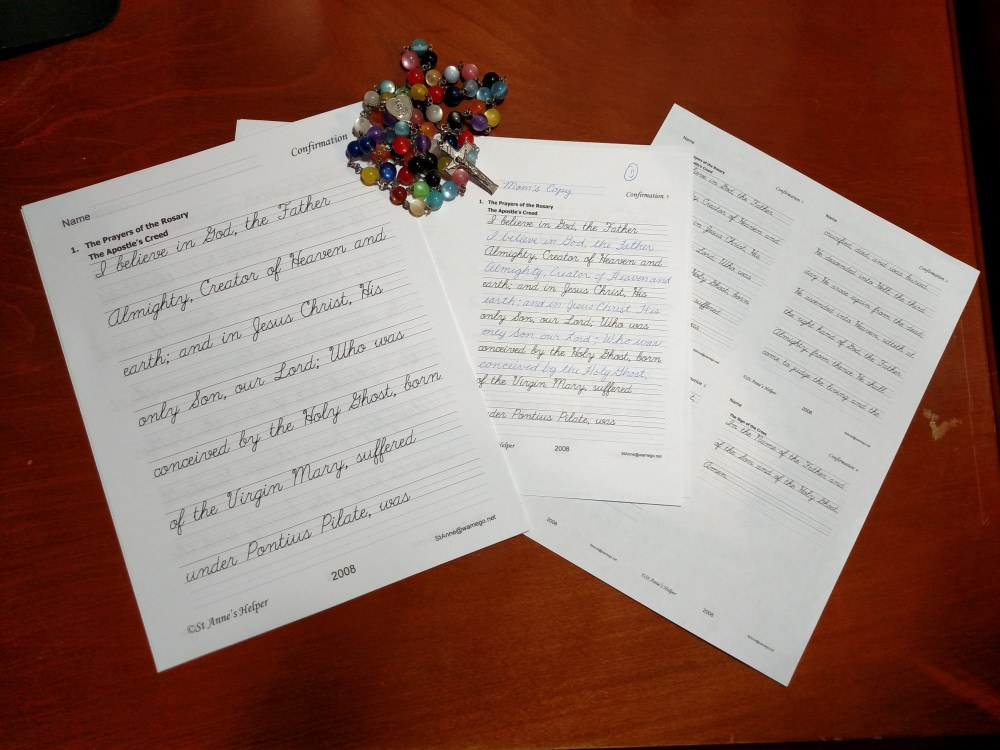 Confirmation
Name
1. The Prayers of the Rosary
The Apostle's Creed
I believe in God, the Father
Almighty, Creator of Heaven and
earth; and in Jesus Christ, His
only Son, our Lord; Who was
conceived by the Holy Ghost, born
of the Virgin Mary, suffered
under Pontius Pilate, was
©St Anne's Helper
2008
StAnne@wamego.net
Mom's Copy
Confirmation
1. The Prayers of the Rosary
The Apostle's Creed
I believe in God, the Father
I believe in God, the Father
Almighty, Creator of Heaven and
Almighty, Creator of Heaven and
earth; and in Jesus Christ, His
earth; and in Jesus Christ His
only Son, our Lord; Who was
only Son our Lord; Who was
conceived by the Holy Ghost, born
conceived by the Holy Ghost,
of the Virgin Mary, suffered
nder Pontius Pilate, was
Helper
2008
StAnne@wamego.net
Name
ayers of the Rosary
ostle's Creed
Confirmation
eve in God, the Father
, Creator of Heaven and
in Jesus Christ, His
Lord; Who was
Holy Ghost, born
suffered
Name
Confirmation
crucified, died, and was buried.
He descended into Hell; the third
day He arose again from the dead;
He ascended into Heaven, sitteth at
the right hand of God, the Father
Almighty; from thence He shall
come to judge the living and the
©St. Anne's Helper
2008
Name
Confirmation
The Sign of the Cross
In the Name of the Father and
of the Son and of the Holy Ghost.
Amen
2008
©St. Anne's Helper
2008